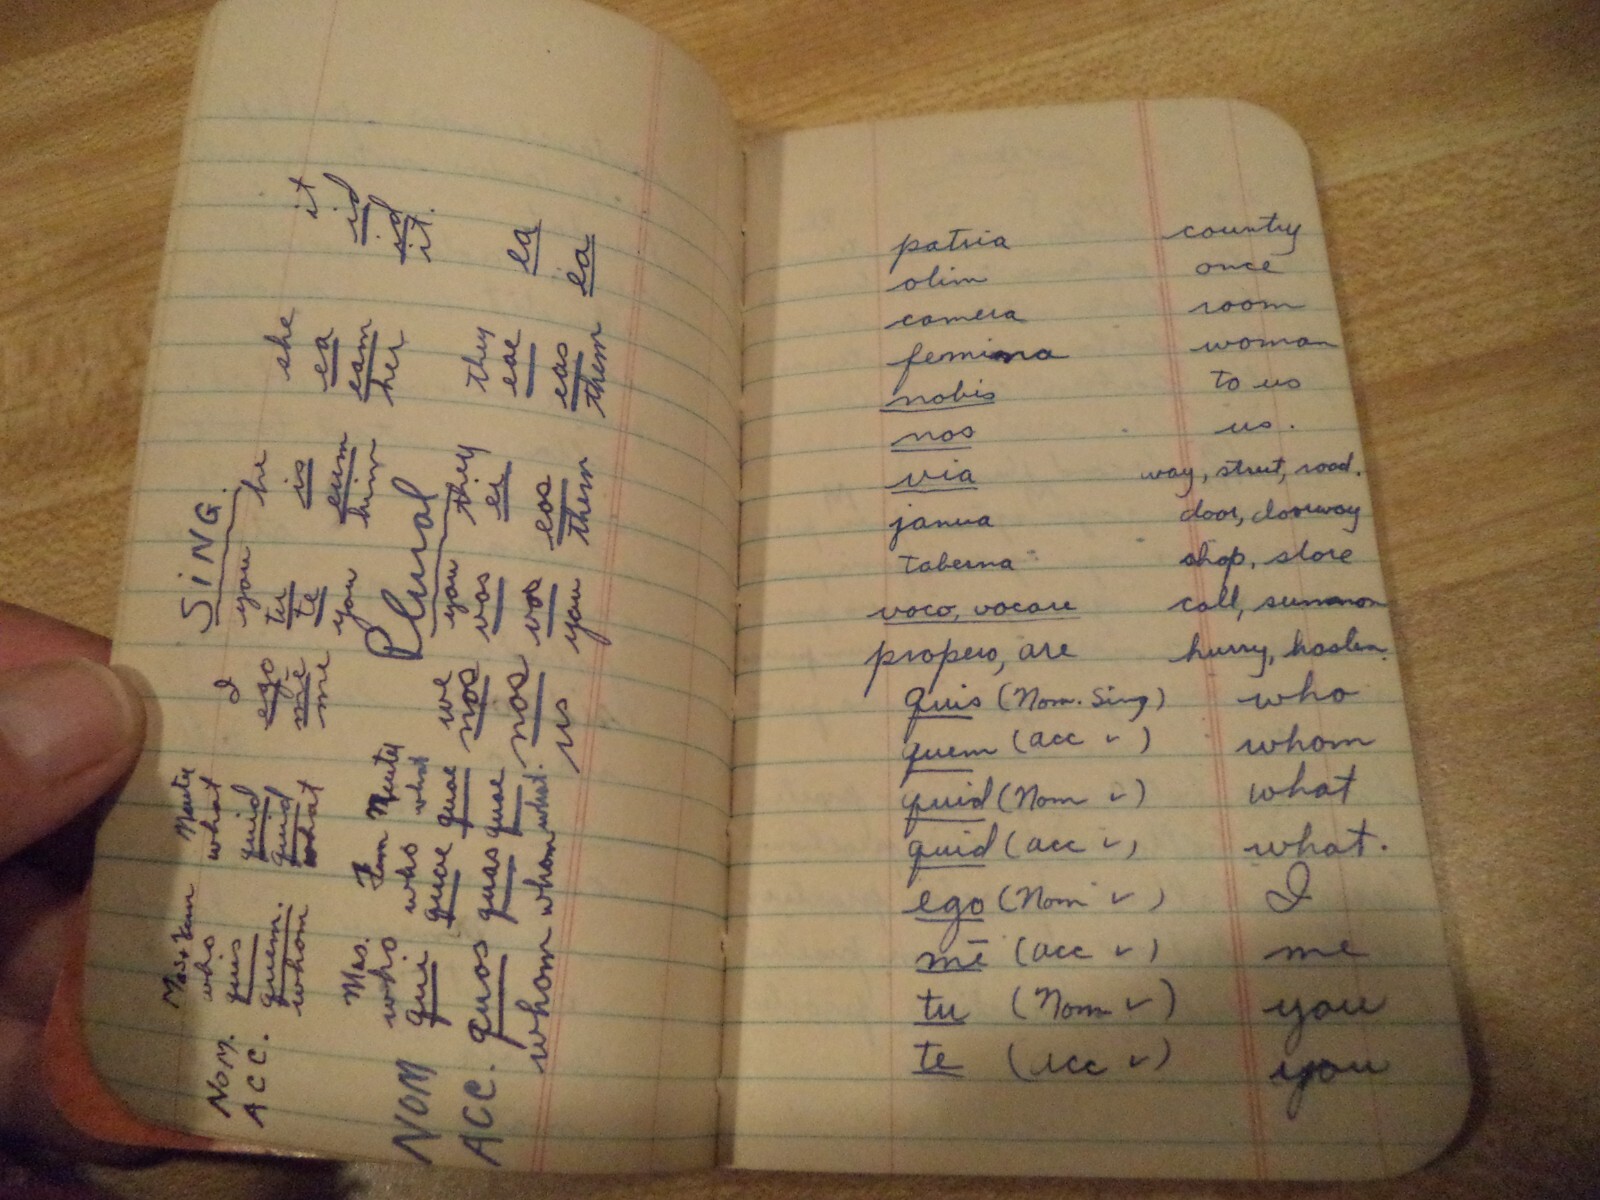 SING.
Mas + Fem Neuty I you he she it
who what ego tu is ea id
NOM. quis quid mē te eum eam id
ACC. quem. quid me you him her it.
whom what
Plural
Mas. Fem Neuty we you they they
who who what nos vos ei eae ea
NOM qui quae quae
ACC. quos quas quae nos vos eos eas ea
whom whom what. us you them them
patria country
olim once
camera room
femina woman
nobis to us
nos us.
via way, street, road.
janua door, doorway
taberna shop, store
voco, vocare call, summon
propero, are hurry, hasten.
quis (Nom. Sing) who
quem (acc ✓) whom
quid (Nom ✓) what
quid (acc ✓) what.
ego (Nom ✓) I
mē (acc ✓) me
tu (Nom ✓) you
te (acc ✓) you